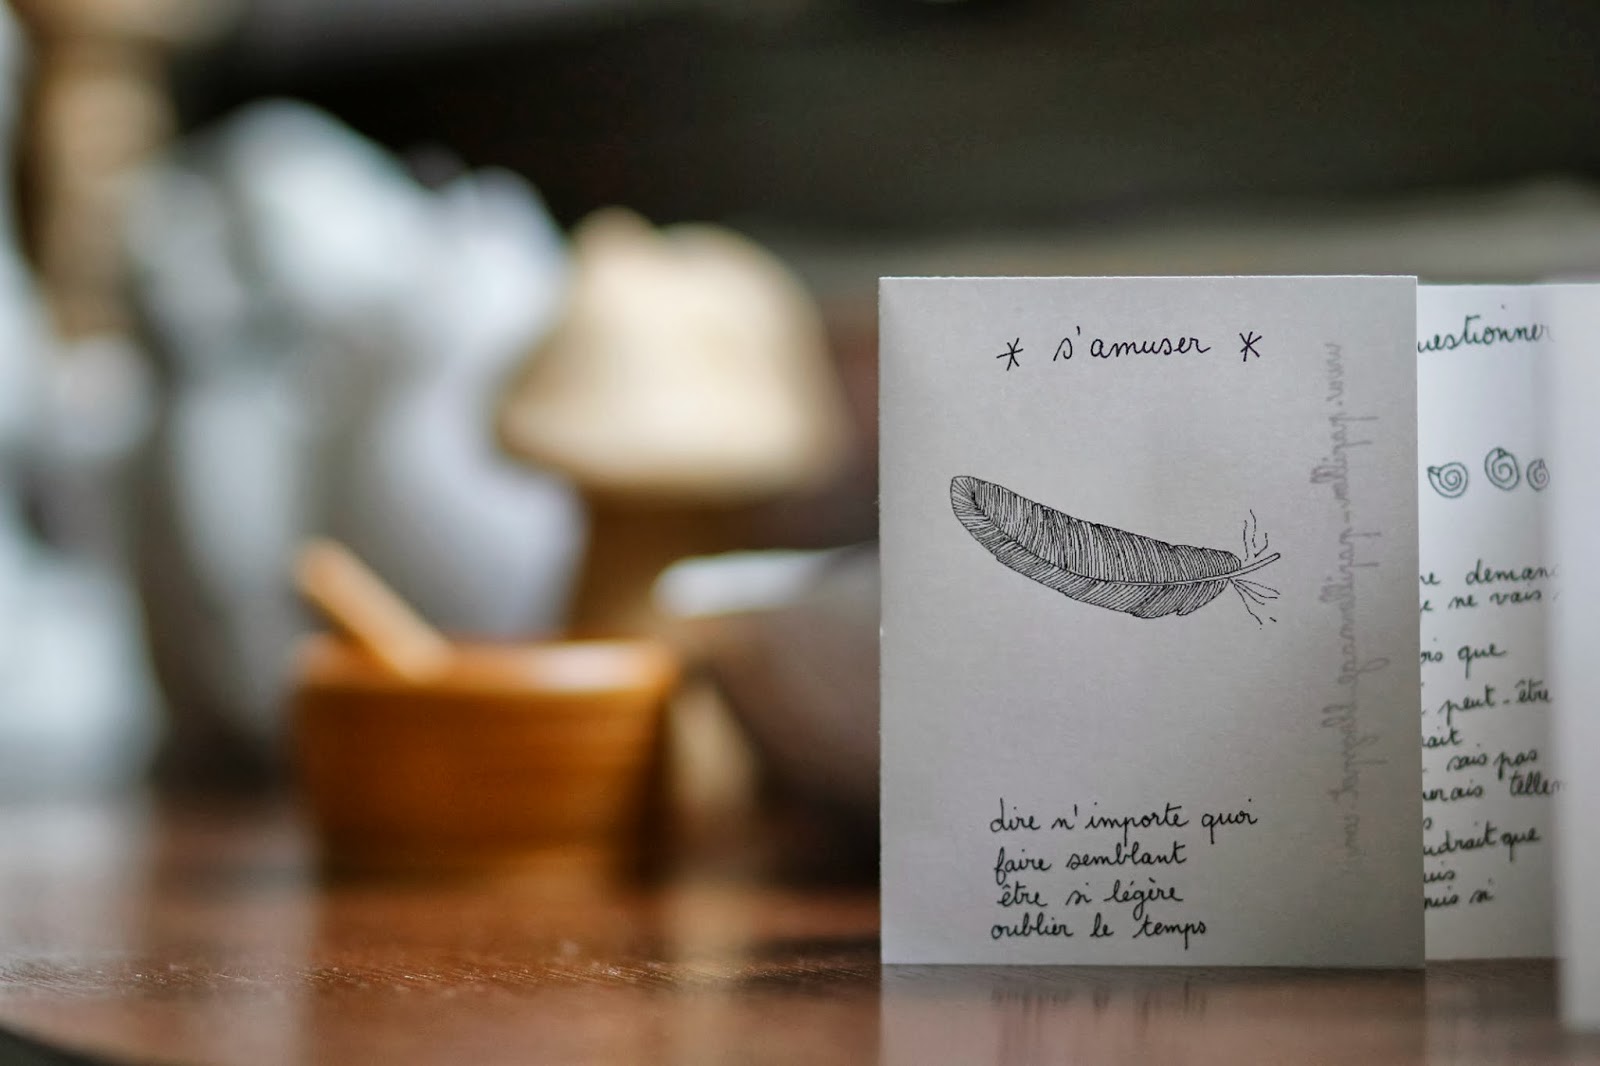 * s'amuser *
dire n'importe quoi
faire semblant
être si légère
oublier le temps
uestionner
deman
ne vais
que
peut-être
ait
sais pas
erais tellem
udrait que
uis
uis si